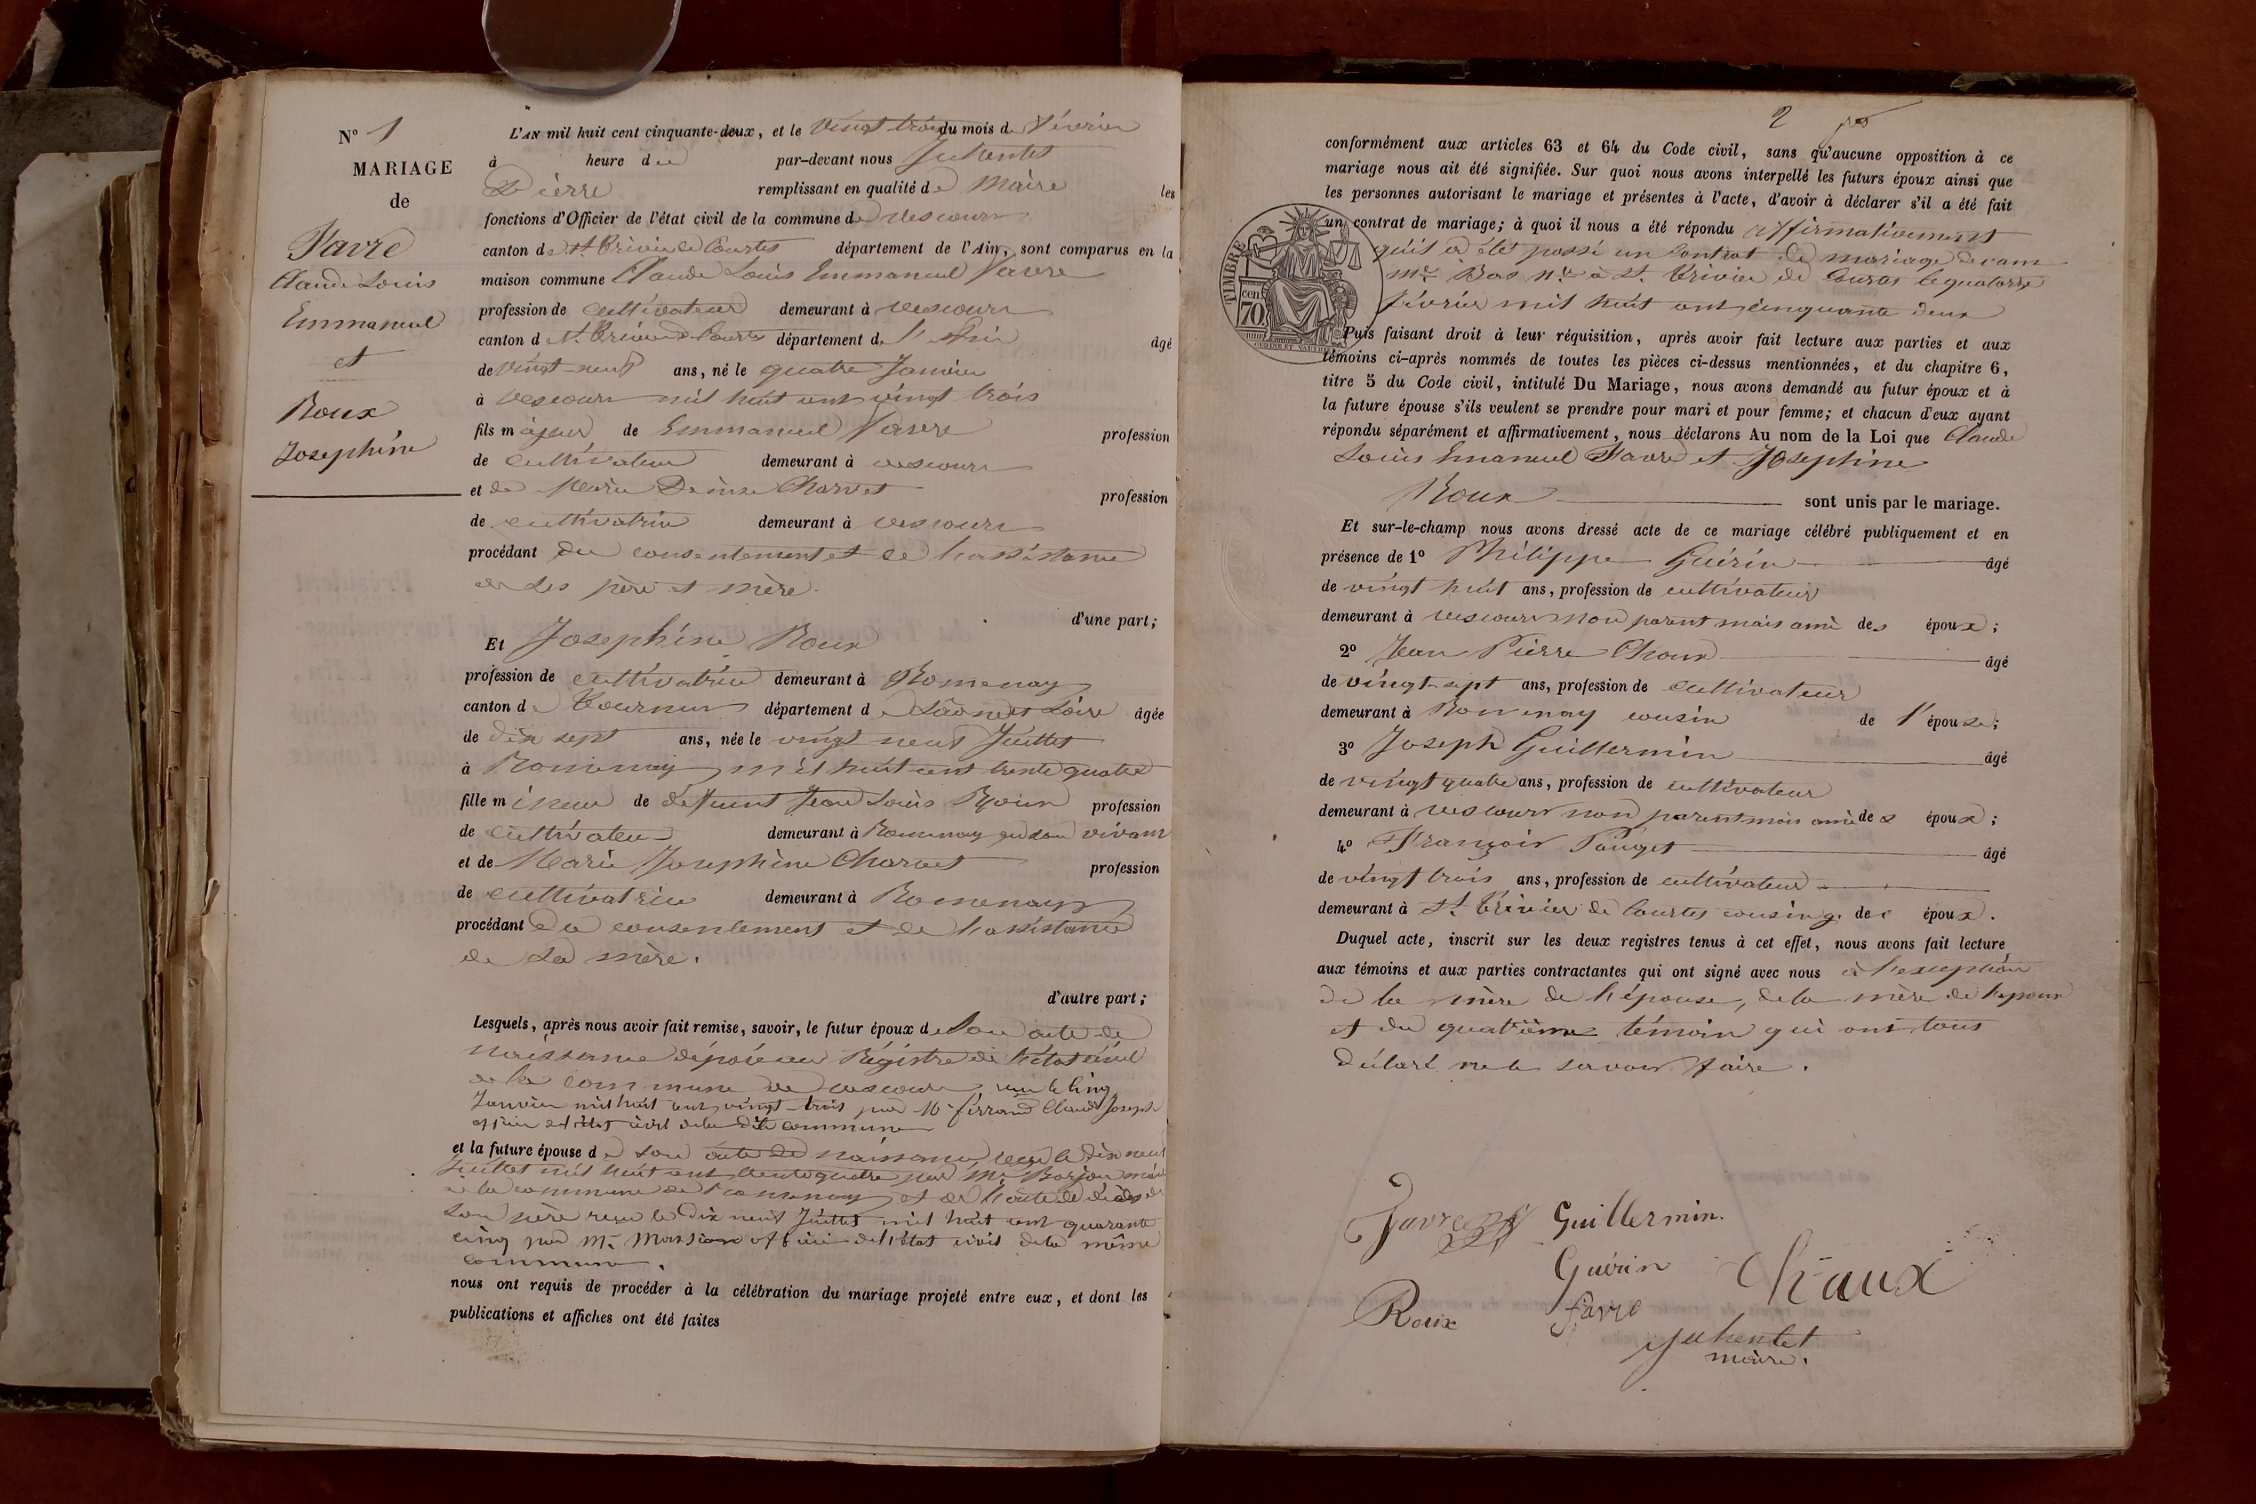 N° 1
MARIAGE
de
Favre
Claude Louis
Emmanuel
et
Roux
Josephine
L'AN mil huit cent cinquante-deux, et le vingt trois du mois de février
à heure de par-devant nous Juhentet
Pierre remplissant en qualité de Maire les
fonctions d'Officier de l'état civil de la commune de vescours
canton de St. Trivier de Courtes département de l'Ain, sont comparus en la
maison commune Claude Louis Emmanuel Favre
profession de cultivateur demeurant à vescours
canton de St. Trivier de Courtes département de l'Ain âgé
de vingt-neuf ans, né le quatre Janvier
à vescours mil huit cent vingt trois
fils majeur de Emmanuel Favre profession
de cultivateur demeurant à vescours
et de Marie Denise Charvet profession
de cultivatrice demeurant à vescours
procédant du consentement et de l'assistance
de ses père et mère.
d'une part;
Et Josephine Roux
profession de cultivatrice demeurant à Romenay
canton de Tournus département de Saône et Loire âgée
de dix sept ans, née le vingt neuf Juillet
à Romenay mil huit cent trente quatre
fille mineur de défunt Jean Louis Roux profession
de cultivateur demeurant à Romenay en son vivant
et de Marie Josephine Charvet profession
de cultivatrice demeurant à Romenay
procédant du consentement et de l'assistance
de sa mère.
d'autre part;
Lesquels, après nous avoir fait remise, savoir, le futur époux de son acte de
naissance déposé au Régistre de l'état civil
de la commune de vescours reçu le cinq
Janvier mil huit cent vingt-trois par Mr ferrand Claude Joseph
officier de l'état civil de la dite commune
et la future épouse de son acte de naissance reçu le dix neuf
Juillet mil huit cent trente quatre par Mr Borjon maire
de la commune de Romenay et de l'acte de décès de
son père reçu le dix neuf Juillet mil huit cent quarante
cinq par Mr officier de l'état civil de la même
commune.
nous ont requis de procéder à la célébration du mariage projeté entre eux, et dont les
publications et affiches ont été faites
2
conformément aux articles 63 et 64 du Code civil, sans qu'aucune opposition à ce
mariage nous ait été signifiée. Sur quoi nous avons interpellé les futurs époux ainsi que
les personnes autorisant le mariage et présentes à l'acte, d'avoir à déclarer s'il a été fait
un contrat de mariage; à quoi il nous a été répondu affirmativement
qu'il a été passé un contrat de mariage devant
Mr Bas Nre à St. Trivier de Courtes le quatorze
février mil huit cent cinquante deux
TIMBRE
cen
70
Puis faisant droit à leur réquisition, après avoir fait lecture aux parties et aux
témoins ci-après nommés de toutes les pièces ci-dessus mentionnées, et du chapitre 6,
titre 5 du Code civil, intitulé Du Mariage, nous avons demandé au futur époux et à
la future épouse s'ils veulent se prendre pour mari et pour femme; et chacun d'eux ayant
répondu séparément et affirmativement, nous déclarons Au nom de la Loi que Claude
Louis Emanuel Favre et Josephine
Roux sont unis par le mariage.
Et sur-le-champ nous avons dressé acte de ce mariage célébré publiquement et en
présence de 1° Philippe Guérin âgé
de vingt huit ans, profession de cultivateur
demeurant à vescours non parent mais ami des époux;
2° Jean Pierre Chaux âgé
de vingt-sept ans, profession de cultivateur
demeurant à Romenay cousin de l'épouse;
3° Joseph Guillermin âgé
de vingt quatre ans, profession de cultivateur
demeurant à vescours non parent mais ami des époux;
4° François Pauget âgé
de vingt trois ans, profession de cultivateur
demeurant à St. Trivier de Courtes cousin g. des époux.
Duquel acte, inscrit sur les deux registres tenus à cet effet, nous avons fait lecture
aux témoins et aux parties contractantes qui ont signé avec nous à l'exception
de la mère de l'épouse, de la mère de l'époux
et du quatrième témoin qui ont tous
déclaré ne le savoir faire.
Favre Guillermin.
Guérin Chaux
Roux favre
Juhentet
maire.